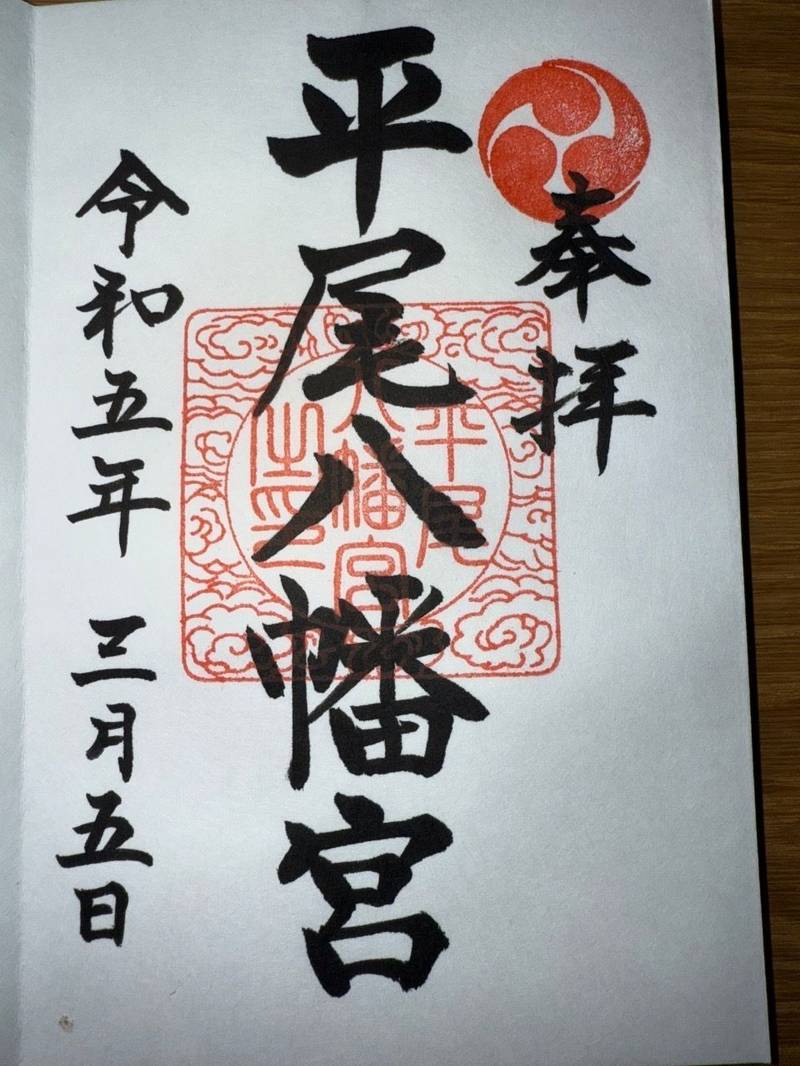 奉拝
平尾八幡宮
平尾
八幡宮
之印
令和五年 三月五日